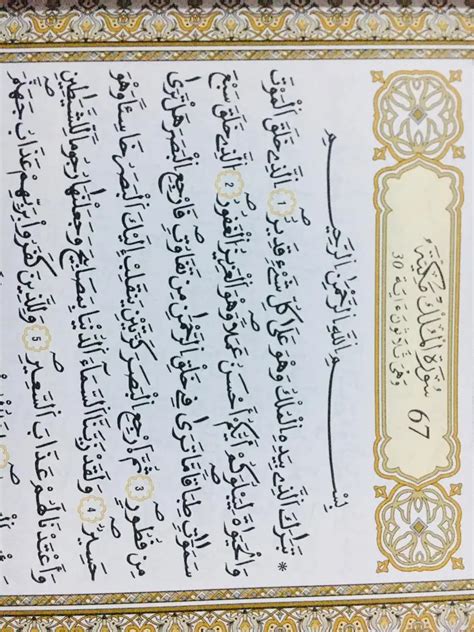 67 سُورَةُ الْمُلْكِ مَكِّيَّةٌ
وَهِيَ ثَلَاثُونَ ءَايَةً 30
بِسْمِ اللَّهِ الرَّحْمَٰنِ الرَّحِيمِ
* تَبَٰرَكَ الَّذِي بِيَدِهِ الْمُلْكُ وَهُوَ عَلَىٰ كُلِّ شَيْءٍ قَدِيرٌ 1 الَّذِي خَلَقَ الْمَوْتَ
وَالْحَيَوٰةَ لِيَبْلُوَكُمْ أَيُّكُمْ أَحْسَنُ عَمَلًا وَهُوَ الْعَزِيزُ الْغَفُورُ 2 الَّذِي خَلَقَ سَبْعَ
سَمَٰوَٰتٍ طِبَاقًا مَّا تَرَىٰ فِي خَلْقِ الرَّحْمَٰنِ مِن تَفَٰوُتٍ فَارْجِعِ الْبَصَرَ هَلْ تَرَىٰ
مِن فُطُورٍ 3 ثُمَّ ارْجِعِ الْبَصَرَ كَرَّتَيْنِ يَنقَلِبْ إِلَيْكَ الْبَصَرُ خَاسِئًا وَهُوَ
حَسِيرٌ 4 وَلَقَدْ زَيَّنَّا السَّمَآءَ الدُّنْيَا بِمَصَٰبِيحَ وَجَعَلْنَٰهَا رُجُومًا لِّلشَّيَٰطِينِ
وَأَعْتَدْنَا لَهُمْ عَذَابَ السَّعِيرِ 5 وَلِلَّذِينَ كَفَرُواْ بِرَبِّهِمْ عَذَابُ جَهَنَّمَ